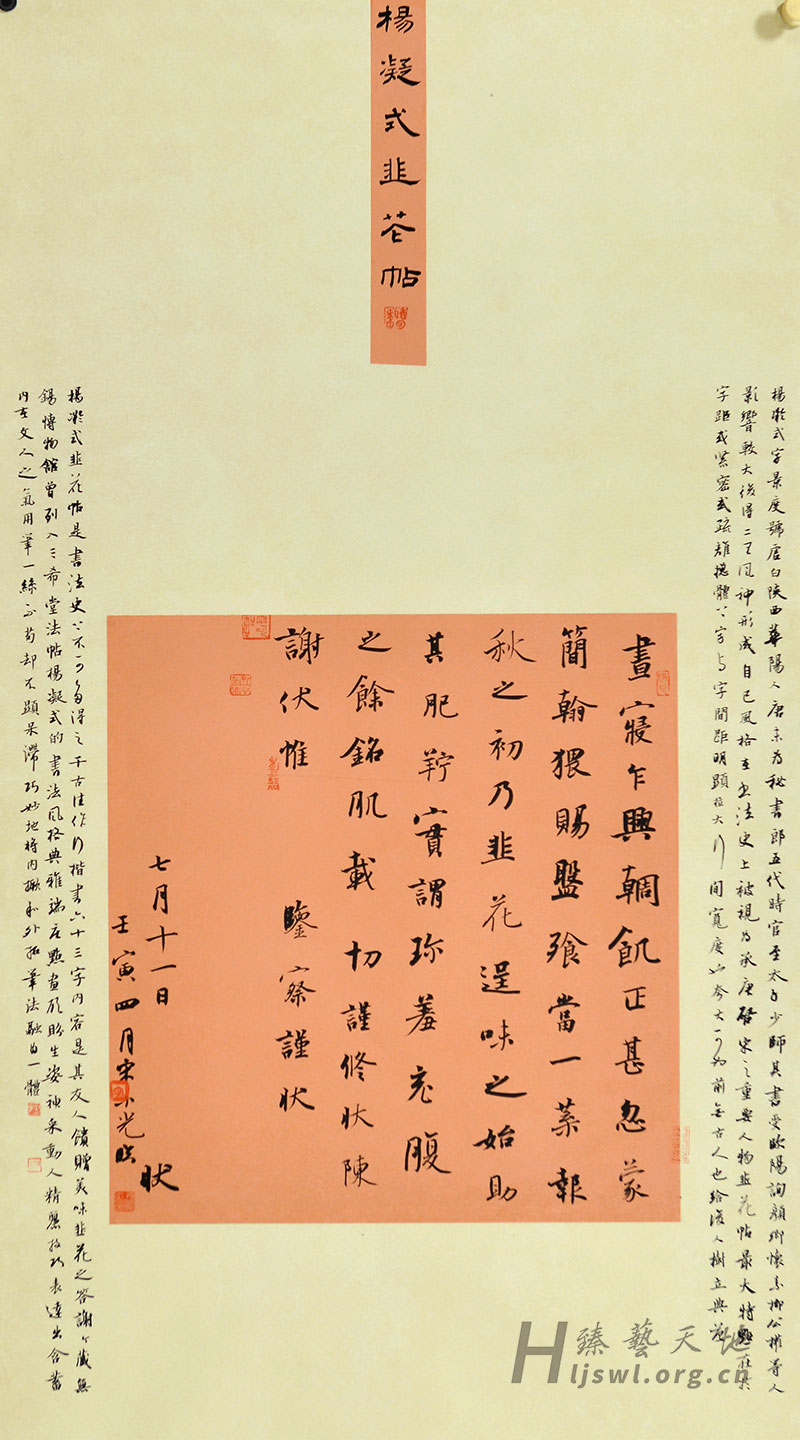 楊凝式韭花帖
楊凝式字景度號虛白陝西華陽人唐末為秘書郎五代時官至太子少師其書受歐陽詢顏卿懷素柳公權等人
影響較大後得二王風神形成自己風格在書法史上被視為承唐啓宋之重要人物韭花帖最大特點在其
字距或緊密或疏離總體上字與字間距明顯拉大行間寬度如夸大可為前無古人也給後人樹立典范
晝寢乍興輖飢正甚忽蒙
簡翰猥賜盤飱當一葉報
秋之初乃韭花逞味之始助
其肥羜實謂珍羞充腹
之餘銘肌載切謹修狀陳
謝伏惟鑒察謹狀
七月十一日狀
壬寅四月宋小光臨
楊凝式韭花帖是書法史上不可多得之千古佳作行楷書六十三字內容是其友人饋贈美味韭花之答謝今藏無
錫博物館曾列入三希堂法帖楊凝式的書法風格典雅端莊點畫顧盼生姿神采動人精緊技巧表達出含蓄
內在文人之氣用筆一絲不苟却不顯呆滯巧妙地將內擫和外拓筆法融為一體
臻藝天地
Hljswl.org.cn